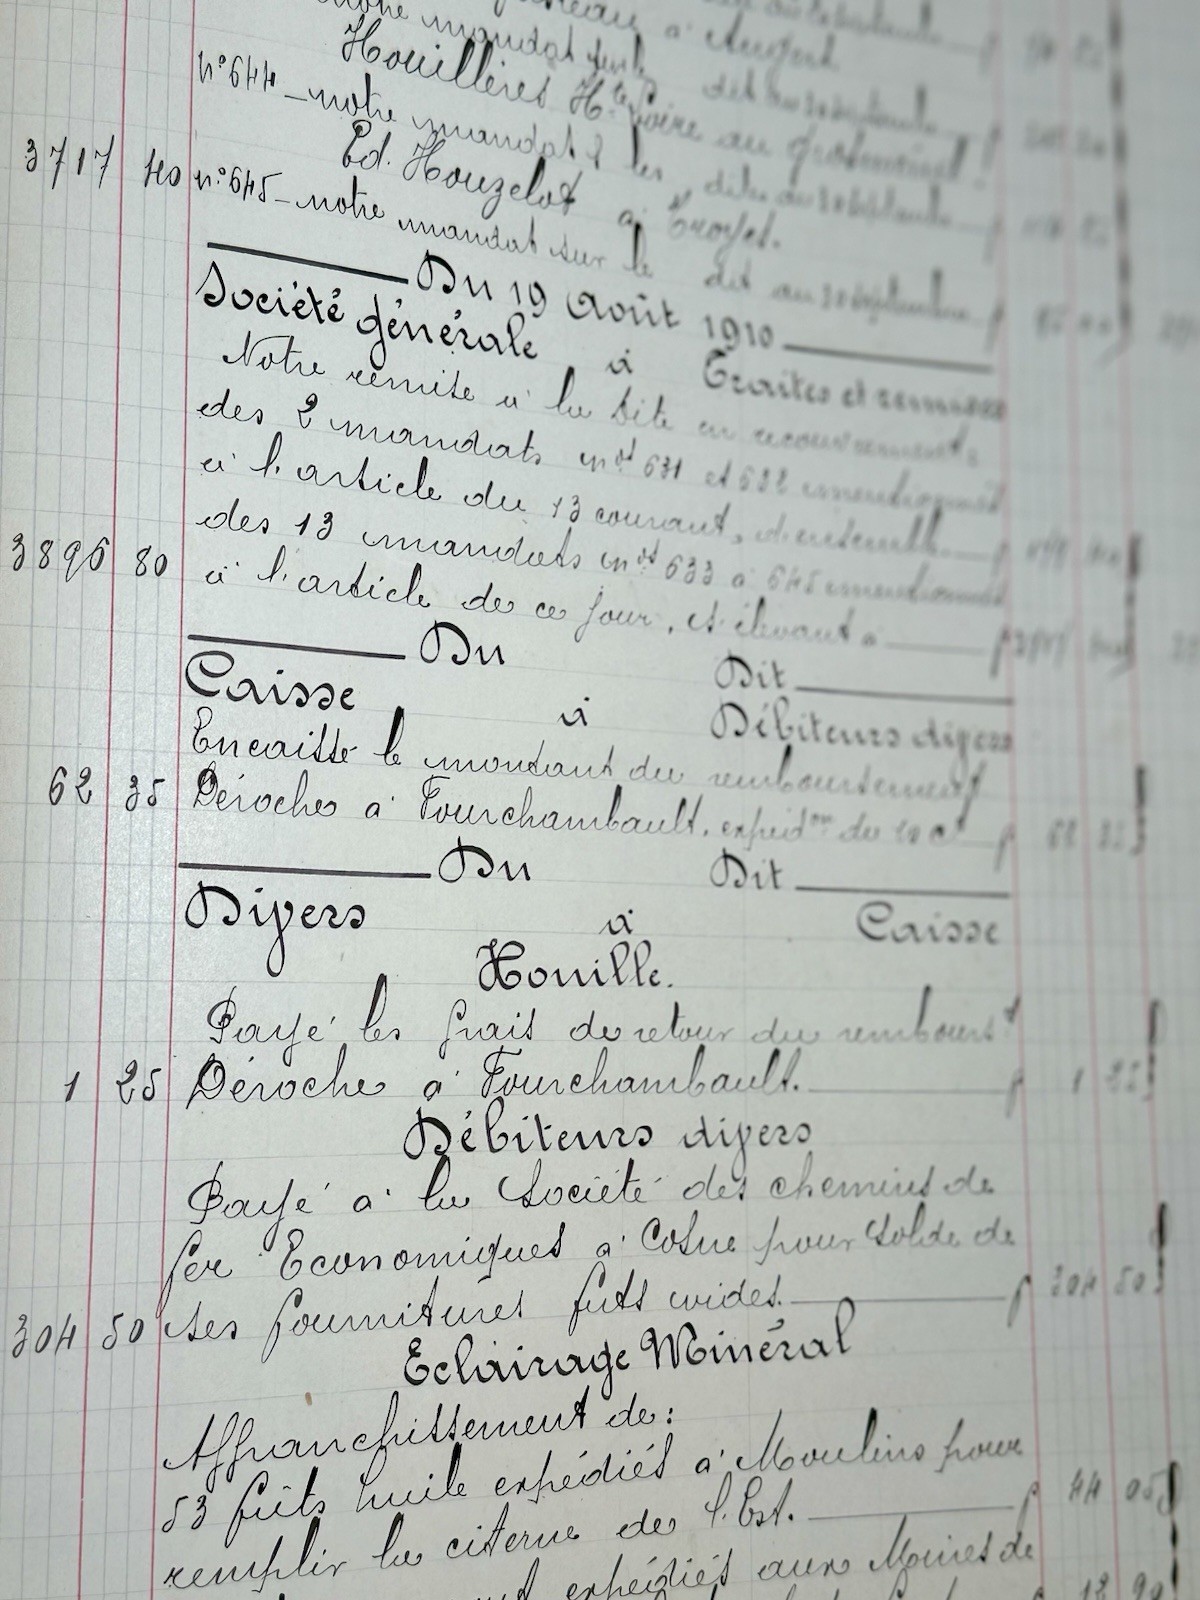 notre mandat sur le dit au 30 septembre
Houillères Hte Loire au Grosmenil
3717 40 n° 644 _ notre mandat s les dites au 30 septembre
Ed. Houzelot à Troyes.
n° 645 _ notre mandat sur le dit au 30 septembre
Du 19 Août 1910
Société générale à Traites et remises
Notre remise à la dite en recouvrement,
des 2 mandats nos 631 et 632 mentionnés
à l'article du 13 courant, d'ensemble
des 13 mandats nos 633 à 645 mentionnés
3896 80 à l'article de ce jour, s'élevant à
Du Dit
Caisse à Débiteurs divers
Encaissé le montant du remboursement
62 35 Déroche à Fourchambault, expédon du 10 ct 62 35
Du Dit
Divers à Caisse
Houille.
Payé les frais de retour du rembourst
1 25 Déroche à Fourchambault. 1 25
Débiteurs divers
Payé à la Société des chemins de
fer Economiques à Cosne pour solde de
304 50 ses fournitures fûts vides. 304 50
Eclairage Minéral
Affranchissement de:
53 fûts huile expédiés à Moulins pour
remplir la citerne de l'Est. 44 05
expédiés aux Mines de
12 90